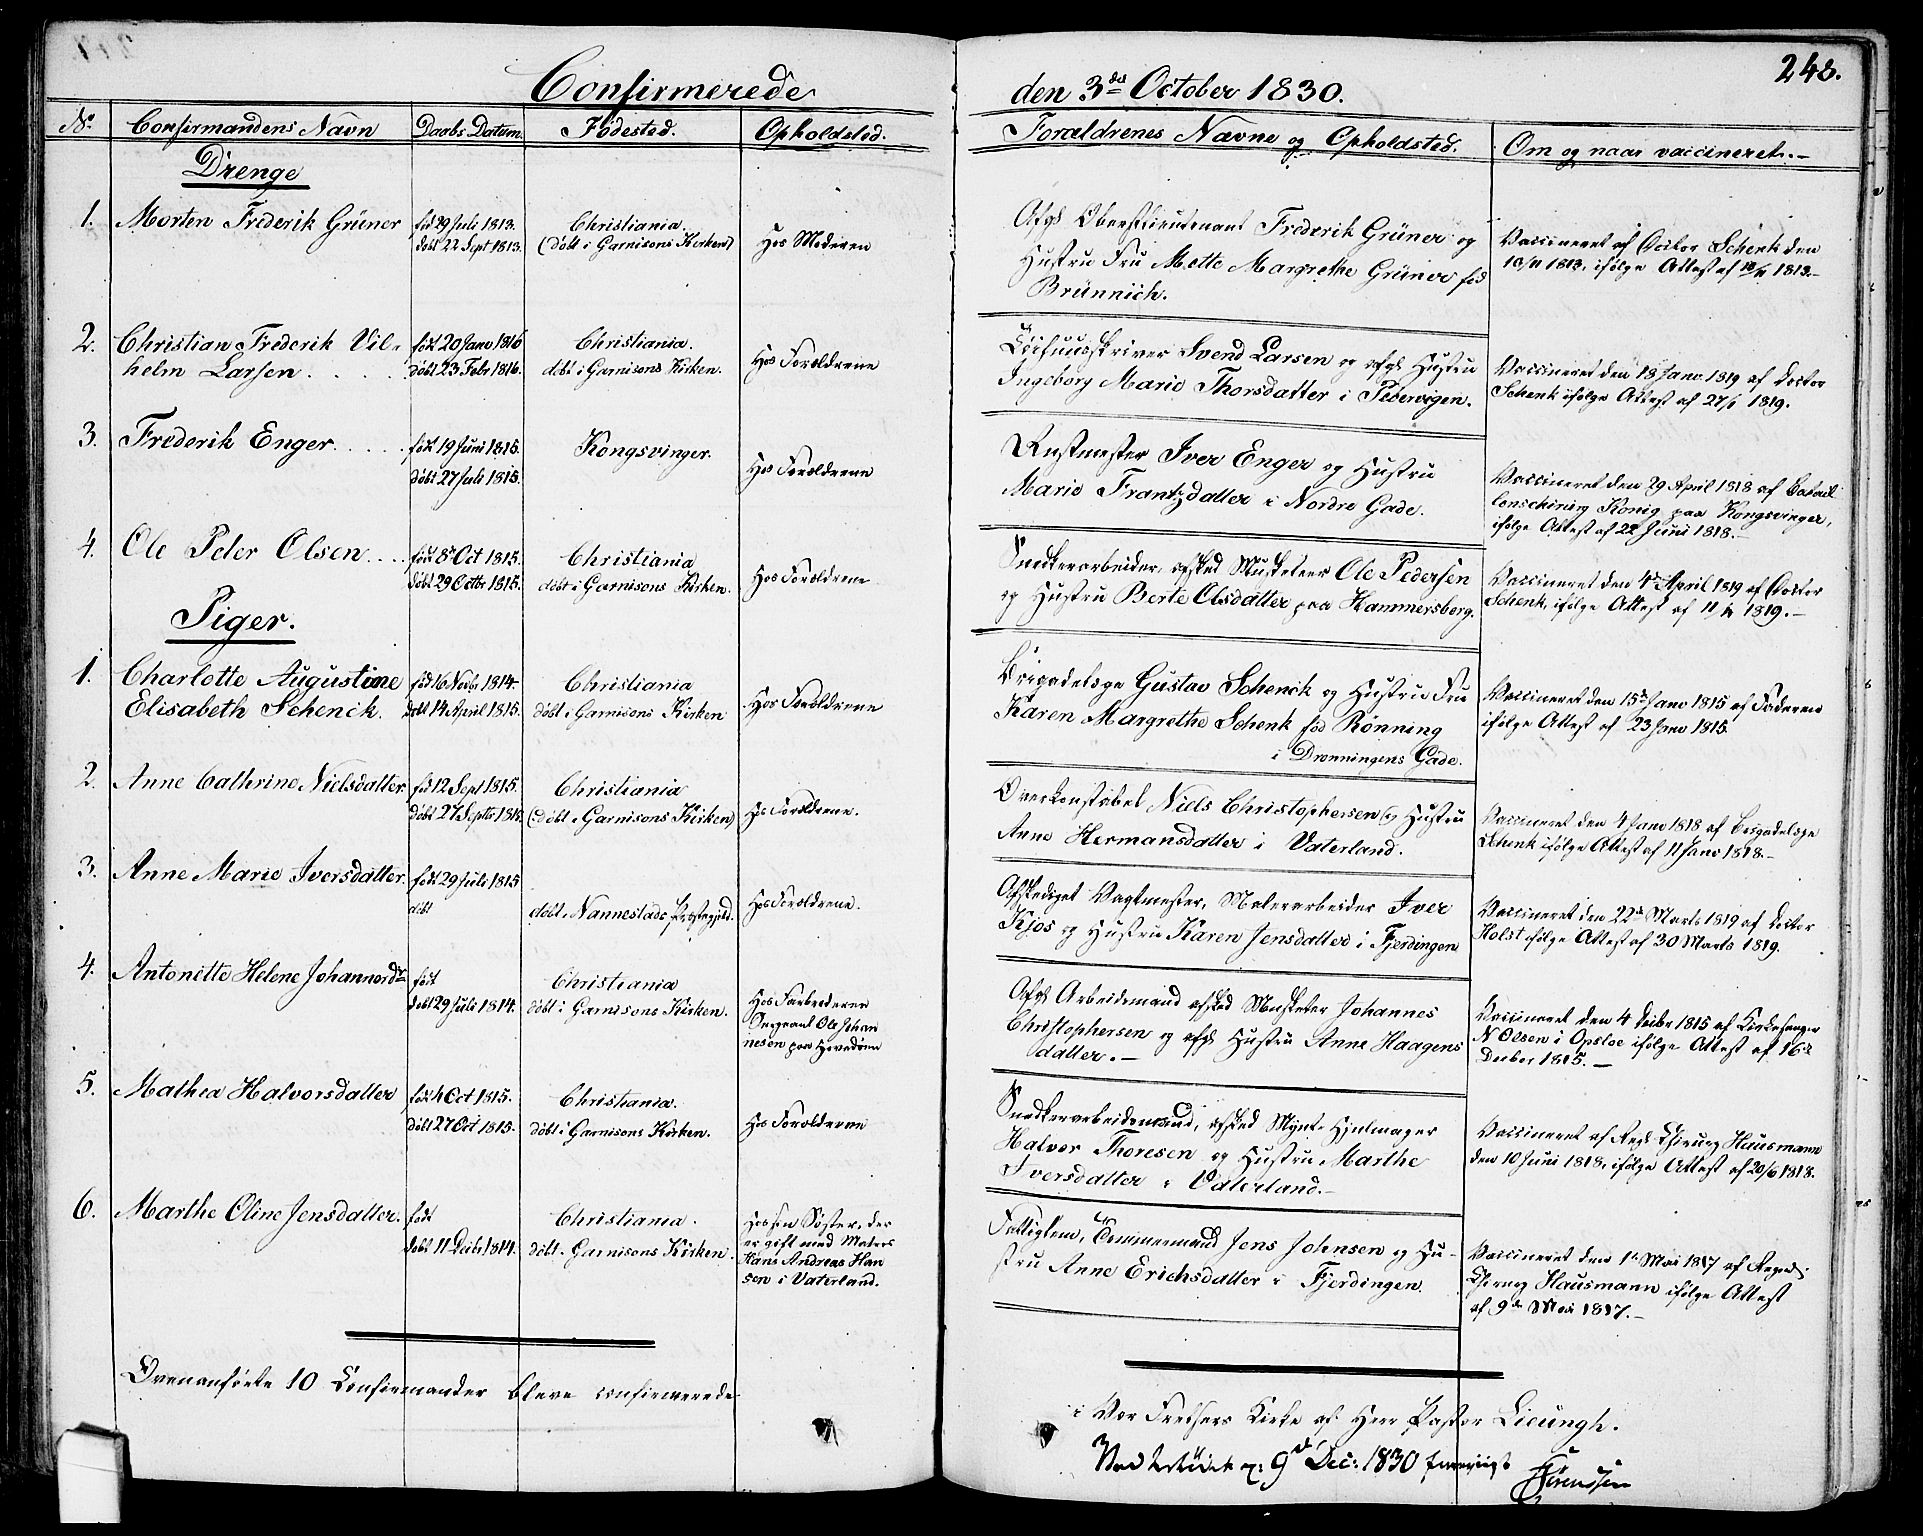 Confirmerede den 3die October 1830.
248.
No. Confirmandens Navn Daabs Datum. Födested. Opholdsted. Forældrenes Navne og Opholdsted. Om og naar vaccineret.-
Drenge
1. Morten Frederik Grüner
fød 29 Juli 1813.
döbt 22 Sept 1813.
Christiania.
(döbt i Garnisons Kirken)
Hos Moderen
Afgl Oberstlieutenant Frederik Grüner og
Hustru Fru Mette Margrethe Grüner fød
Brünnich.
Vaccineret af Doctor Schenk den
10/11 1813, ifølge Attest af 1813.-
2. Christian Frederik Vil-
helm Larsen . . . .
født 20 Janv 1816
döbt 23 Febr 1816.
Christiania.
döbt i Garnisons Kirken.
Hos Forældrene
Svend Larsen og afgl Hustru
Ingeborg Marie Thorsdatter i Pebervigen.
Vaccineret den 18 Janv 1819 af Doctor
Schenk ifølge Attest af 27/1 1819.
3. Frederik Enger. . . . .
født 19 Juni 1815.
döbt 27 Juli 1815.
Kongsvinger.
Hos Forældrene
Rustmester Iver Enger og Hustru
Marie Frantzdatter i Nordre Gade.
Vaccineret den 29 April 1818 af Batail-
lonschirurg Konig paa Kongsvinger,
ifølge Attest af 22 Juni 1818.-
4. Ole Peter Olsen. . . .
født 8de Oct 1815.
döbt 29 Octbr 1815.
Christiania
döbt i Garnisons Kirken.
Hos Forældrene
Snedkerarbeider, afsked Musketeer Ole Pedersen
og Hustru Berte Olsdatter paa Hammersborg.
Vaccineret den 4de April 1819 af Doctor
Schenk, ifølge Attest af 11/4 1819.-
Piger.
1. Charlotte Augustine
Elisabeth Schenck.
fød 16 Novbr 1814.
döbt 14 April 1815.
Christiania
döbt i Garnisons Kirken
Hos Forældrene
Brigadelæge Gustav Schenck og Hustru Fru
Karen Margrethe Schenk fød Rönning
i Dronningens Gade.
Vaccineret den 15de Janv 1815 af Faderen
ifølge Attest af 23 Janv 1815.
2. Anne Cathrine Nielsdatter.
fød 12 Sept 1815.
döbt 27 Septbr 1815.
Christiania
(döbt i Garnisons Kirken)
Hos Forældrene.
Overkonstabel Niels Christophersen og Hustru
Anne Hermansdatter i Vaterland.
Vaccineret den 4 Janv 1818 af Brigadelæge
Schenk ifølge Attest af 11 Janv 1818.-
3. Anne Marie Iversdatter.
født 29 Juli 1815
döbt
döbt i Nannestads Præstegjeld.
Hos Forældrene.
Afskediget Vagtmester, Malerarbeider Iver
Kjos og Hustru Karen Jensdatter i Fjerdingen
Vaccineret den 22de Marts 1819 af Doctor
Holst ifølge Attest af 30 Marts 1819.
4. Antonette Helene Johannesdr
født
döbt 29 Juli 1814.
Christiania
döbt i Garnisons Kirken.
Hos Farbroderen
Sergeant Ole Johan
nesen paa Hovedøen
Afgl Arbeidsmand afsked Musketeer Johannes
Christophersen og afgl Hustru Anne Haagens
datter.-
Vaccineret den 4 Decbr 1815 af Kirkesanger
N Olsen i Opsloe ifølge Attest af 16de
Decbr 1815.-
5. Mathea Halvorsdatter
født 4 Oct 1815.
döbt 27 Oct 1815.
Christiania.
döbt i Garnisons Kirken.
Hos Forældrene
Snedkerarbeidsmand, afsked Mynt- Hjulmager
Halvor Thoresen og Hustru Marthe
Iversdatter i Vaterland.-
Vaccineret af Regt Chirurg Hausmann
den 10 Juni 1818, ifølge Attest af 20/6 1818.
6. Marthe Oline Jensdatter.
født
döbt 11 Decbr 1814.
Christiania.
döbt i Garnisons Kirken.
Hos sin Søster, der
er gift med Matros
Hans Andreas Han
sen i Vaterland.
Fattiglem, Tømmermand Jens Johnsen og Hu-
stru Anne Erichsdatter i Fjerdingen.
Vaccineret den 1ste Mai 1817 af Regmts
Chirurg Hausmann ifølge Attest
af 9de Mai 1817.-
Ovenanførte 10 Confirmander bleve confirmerede
i Vor Frelsers Kirke af Herr Pastor Lieungh.
9de Dec: 1830
Sörenssen